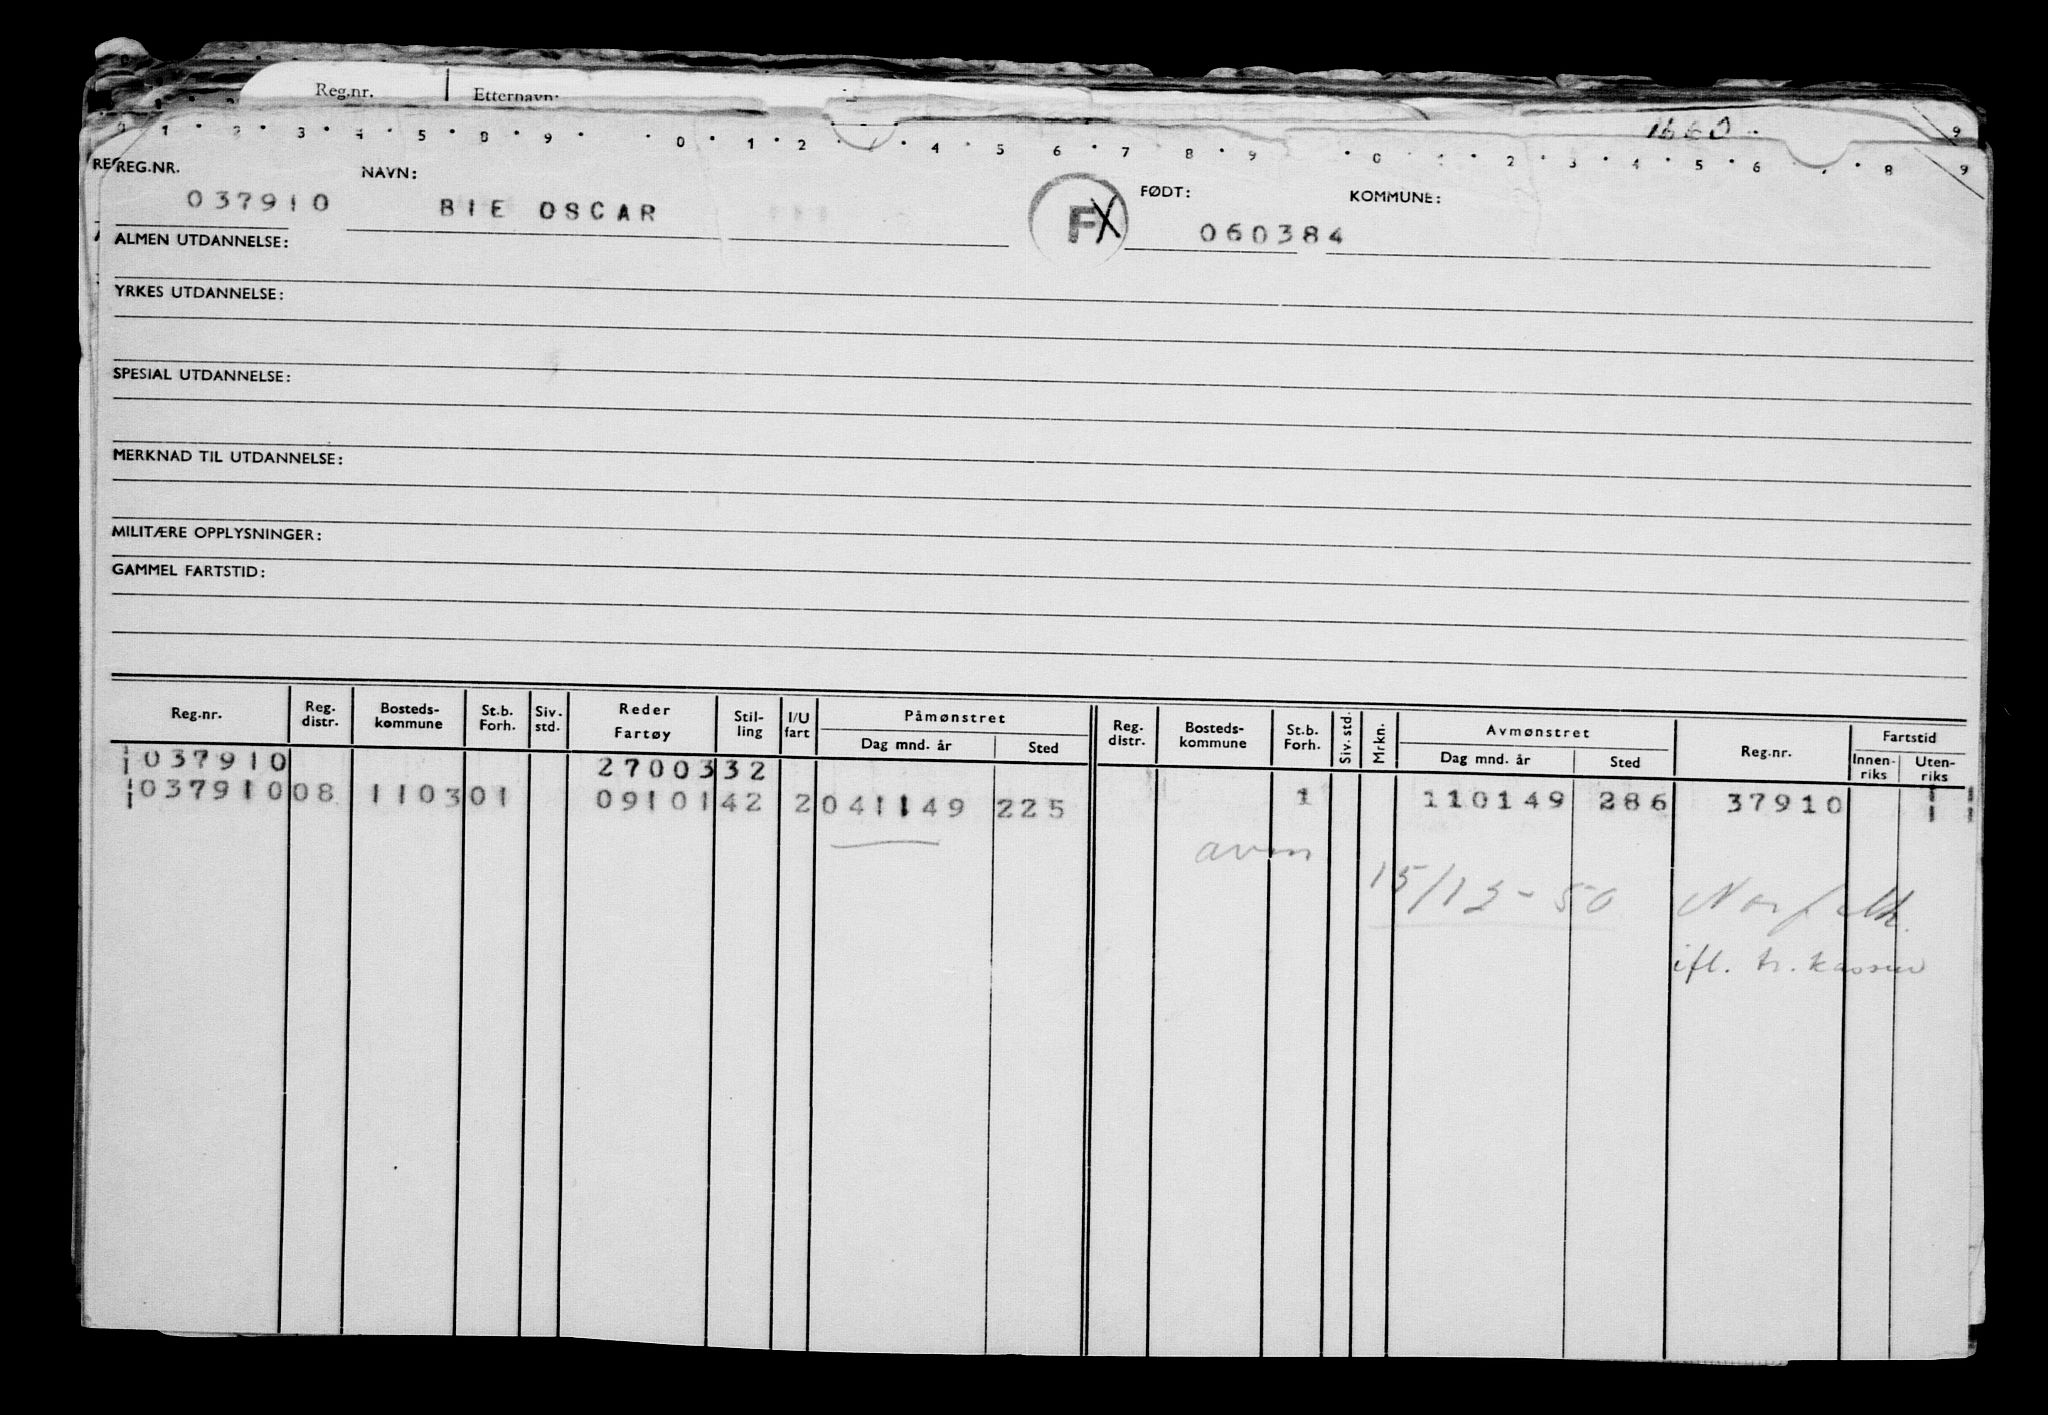 Reg.nr. Etternavn:
1660
0 1 2 3 4 5 8 9 0 1 2 4 5 6 7 8 9 0 1 2 3 4 5 6 8 9
REG.NR. NAVN: FX FØDT: KOMMUNE:
037910 BIE OSCAR 060384
ALMEN UTDANNELSE:
YRKES UTDANNELSE:
SPESIAL UTDANNELSE:
MERKNAD TIL UTDANNELSE:
MILITÆRE OPPLYSNINGER:
GAMMEL FARTSTID:
Reg.nr. Reg. distr. Bosteds-kommune St.b. Forh. Siv. std. Reder Fartøy Stil-ling I/U fart Påmønstret Dag mnd. år Sted Reg. distr. Bosteds-kommune St.b. Forh. Siv. std. Mrkn. Avmønstret Dag mnd. år Sted Reg.nr. Fartstid Innen-riks Uten-riks
037910 2700332
037910 08 1103 01 091014 2 2 041149 225 1 110149 286 37910
avm 15/12-50 Norfolk
ifl. tr. kassen